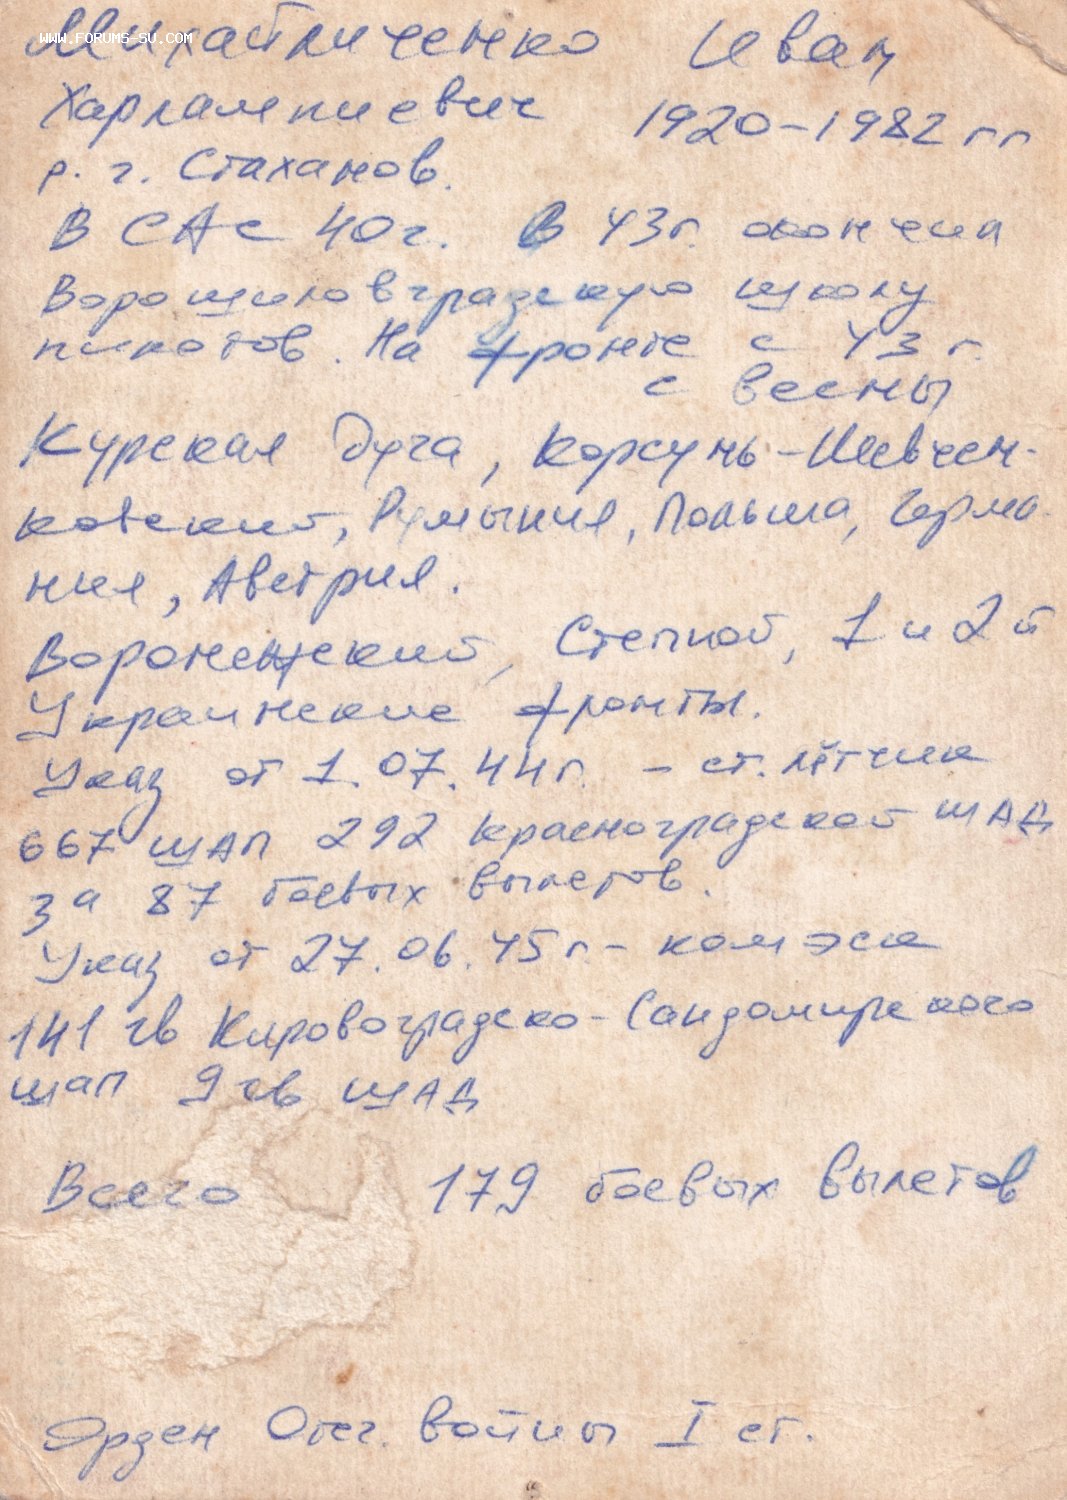 www.forums-su.com
Михайличенко Иван
Харлампиевич 1920-1982 гг
р. г. Стаханов.
В СА с 40г. В 43г. окончил
Ворошиловградскую школу
пилотов. На фронте с 43 г.
с весны
Курская Дуга, Корсунь-Шевчен-
ковский, Румыния, Польша, Герма-
ния, Австрия.
Воронежский, Степной, 1 и 2й
Украинские фронты.
Указ от 1.07.44г. - ст. лётчик
667 ШАП 292 Красноградской ШАД
за 87 боевых вылетов.
Указ от 27.06.45г. - комэск
141 гв Кировоградско-Сандомирского
шап 9 гв ШАД
Всего 179 боевых вылетов
Орден Отеч. войны I ст.